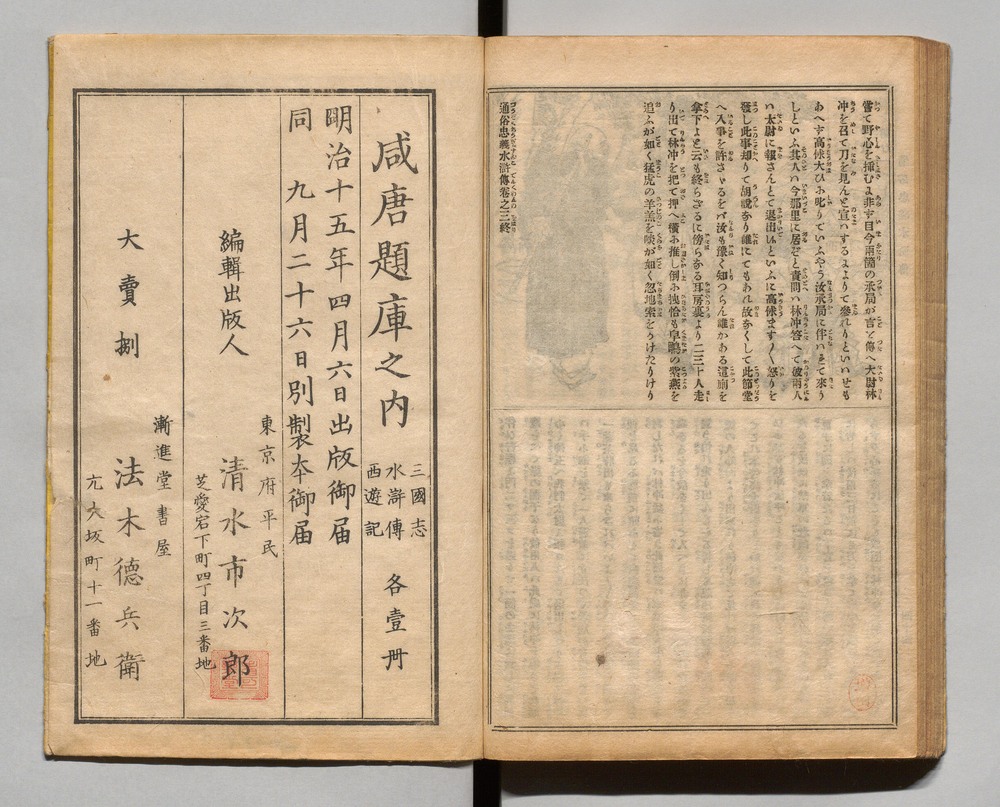 嘗て野心を挿むよ非ず目今兩箇の承局が言と傳へ大尉林
冲を召て刀を見んと宣ハするよよりて參れりといハせも
あへず高俅大ひふ叱りていふやう汝承局に伴ハまて來り
しといふ其人ハ今那里に居ぞと責問ハ林冲答へて彼兩人
ハ太尉に報さんとて退出ぬといふに高俅ますく怒りを
發し此事却りて胡説なり誰にてもあれ故なくして此節堂
へ入事を許さゞるをバ汝も豫く知つらん誰かある這廝を
拿下よと云も終らざるに傍らなる耳房裏より二三十人走
り出て林冲を把て押へ横ふ推し倒ふ拽恰も皁鵰の紫燕を
追ふが如く猛虎の羊羔を啖が如く忽地索をうけたりけり
通俗忠義水滸傳卷之三終
咸唐題庫之内
三國志
水滸傳
西遊記
各壹册
明治十五年四月六日出版御届
同 九月二十六日別製本御届
東京府平民
編輯出版人 清水市次郎
芝愛宕下町四丁目三番地
漸進堂書屋
大賣捌 法木德兵衛
元大坂町十一番地